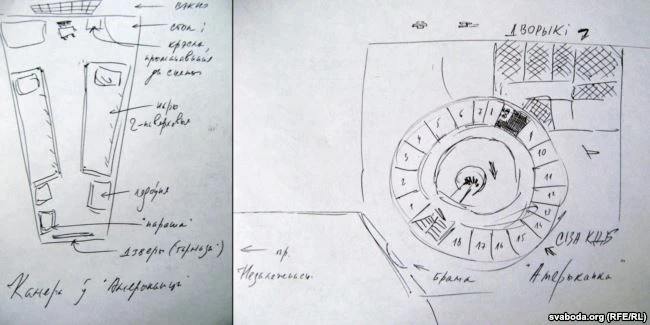 вакно
стол і
крэсла,
прымацаваныя
да сцяны
нары
2-павярховыя
"параша"
дзверы (тармаза)
Камера ў "Амерыканцы"
ДВОРЫКІ
1
2
3
4
5
6
7
9
10
11
12
13
14
15
16
17
18
СІЗА КДБ
"Амерыканка"
брама
пр.
Незалежнасці
svaboda.org (RFE/RL)